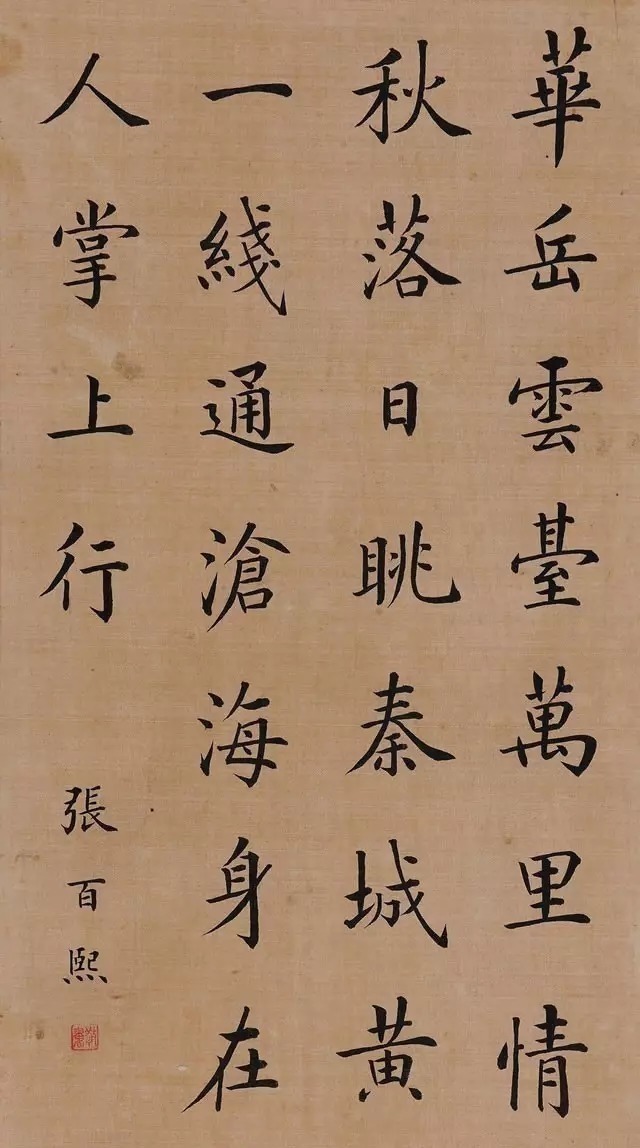 華岳雲臺萬里情
秋落日眺秦城黄
一綫通滄海身在
人掌上行
張百熙